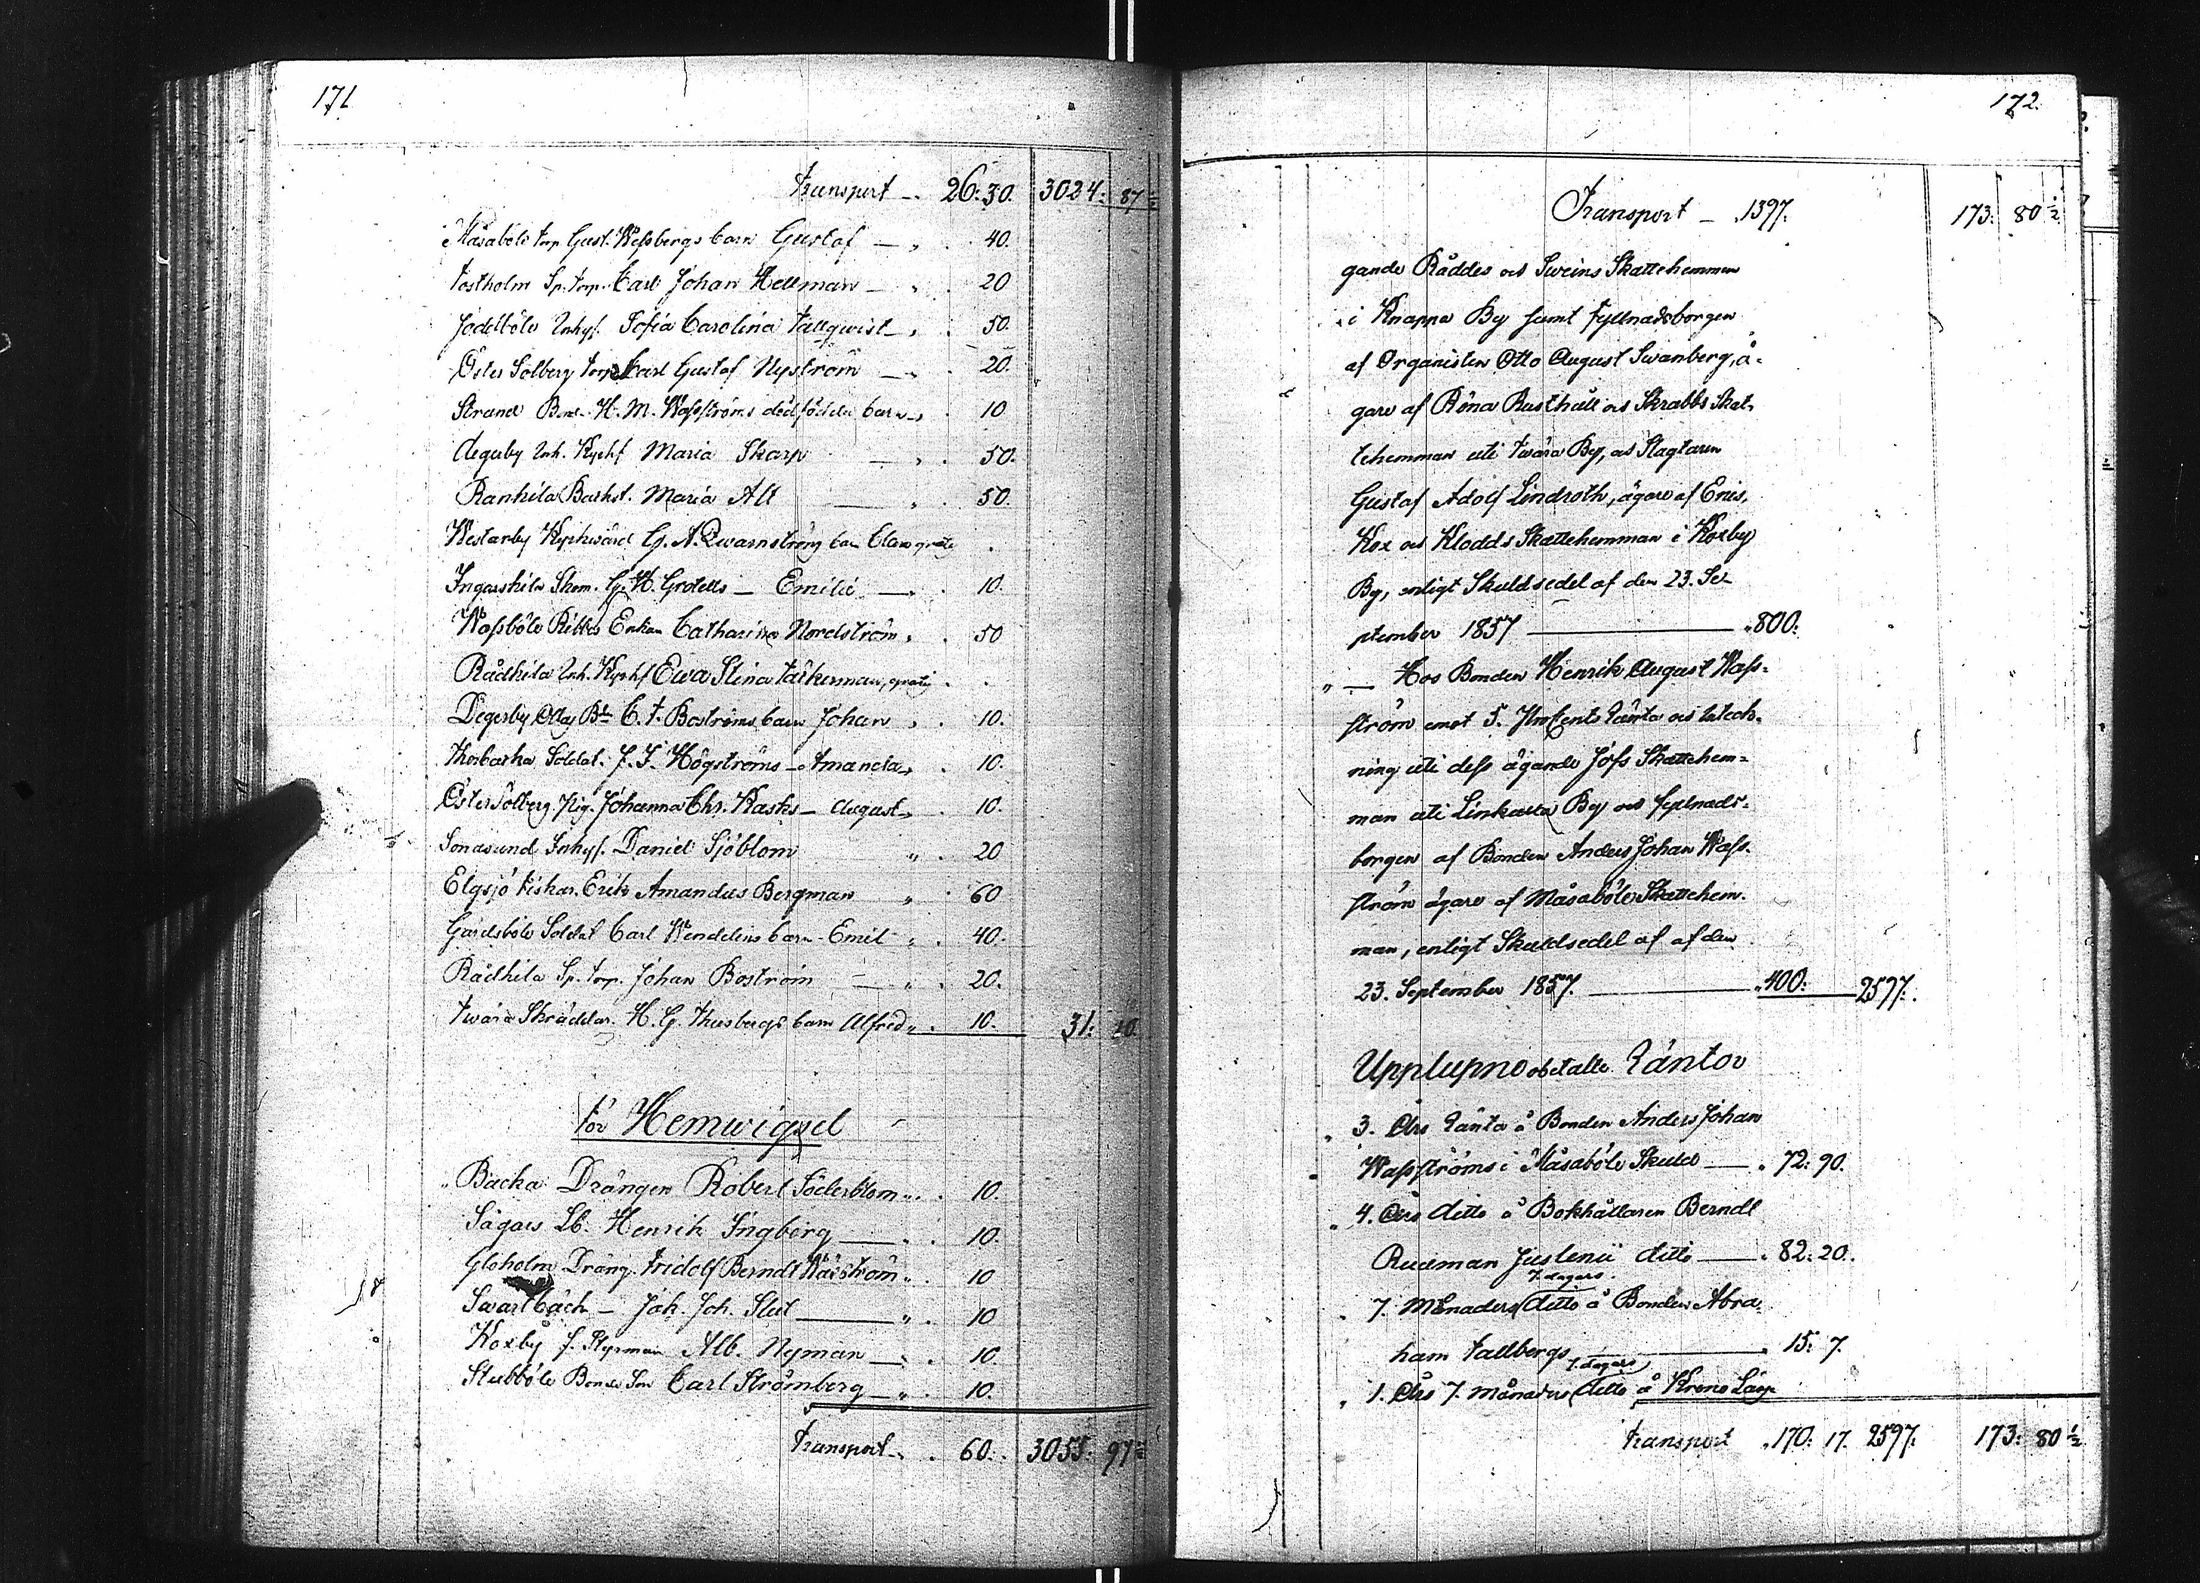 171
Transport — 26: 30. 3024: 87 ½
Måsaböle torp. Gust. Wessbergs barn Gustaf — „ 40.
Tostholm Sp. torp. Carl Johan Hellman — „ 20
Joddböle Inhys. Sofia Carolina Tallqwist „ 50.
Öster Solberg torp. Carl Gustaf Nyström — „ 20.
Strand Bond. H. M. Wassströms dödfödda barn „ 10
Degerby Inh. Maria Skarp — „ 50.
Rankila Maria Alt — „ 50.
Westarby Kyrkwärd G. A. Qwarnström barn gratis
Ingarskila G. H. Grotells — Emilie — „ 10.
Wassböle Ribbas Enkan Catharina Nordström „ 50
Rådkila Inh. Ewa Stina Täckerman, gratis
Degerby C. F. Boströms barn Johan „ 10.
Thorbacka Soldat. J. F. Högströms — Amanda „ 10.
Öster Solberg Pig. Johanna Chr. Kasks — August „ 10.
Sonasund Inhys. Daniel Sjöblom „ 20
Elgsjö Fiskar. Erik Amandus Bergman „ 60
Gårdsböle Soldat Carl Wendelins barn — Emil „ 40.
Rådkila Sp. torp. Johan Boström — „ 20.
Twära Skräddar. H. G. Thusbergs barn Alfred „ 10. 31: 10.
för Hemwigsel
Backa Drängen Robert Söderblom „ 10.
Sågars Lb. Henrik Ingberg — „ 10.
Gloholm Dräng. Fridolf Berndt Wäström „ 10
Swartbäck — Joh. Joh. Slut — „ 10
Koxby f. Styrman Alb. Nyman — „ 10.
Stubböle Bonde Son Carl Strömberg — „ 10.
Transport — 60: 3055: 97 ½
172.
Transport — 1397: 173: 80 ½
gande Råddes och Sweins Skattehemman
i Knappa By samt fyllnadsborgen
af Organisten Otto August Swanberg, ä-
gare af Röna Rusthåll och Skrabbs Skat-
tehemman uti Twära By, och Slagtaren
Gustaf Adolf Lindroth, ägare af Enis,
Kox och Klodds Skattehemman i Koxby
By, enligt Skuldsedel af den 23. Se-
ptember 1857 — „ 800:
„ — Hos Bonden Henrik August Wass-
ström emot 5. Procents Ränta och Inteck-
ning uti dess ägande Jofs Skattehem-
man uti Linkulla By och fyllnads-
borgen af Bonden Anders Johan Wass-
ström ägare af Måsaböle Skattehem-
man, enligt Skuldsedel af af den
23. September 1857. — „ 400: 2597:
Upplupne obetalte Räntor
„ 3. Års Ränta å Bonden Anders Johan
Wassströms i Måsaböle Skuld — „ 72: 90.
„ 4. Års ditto å Bokhållaren Berndt
Rudman Juslenii ditto — „ 82: 20.
7. dagars
„ 7. Månaders ditto å Bonden Abra-
ham Tallbergs — „ 15: 7.
7. dagars
„ 1. Års 7. Månaders ditto å Krono Läns
Transport „ 170: 17. 2597: 173: 80 ½